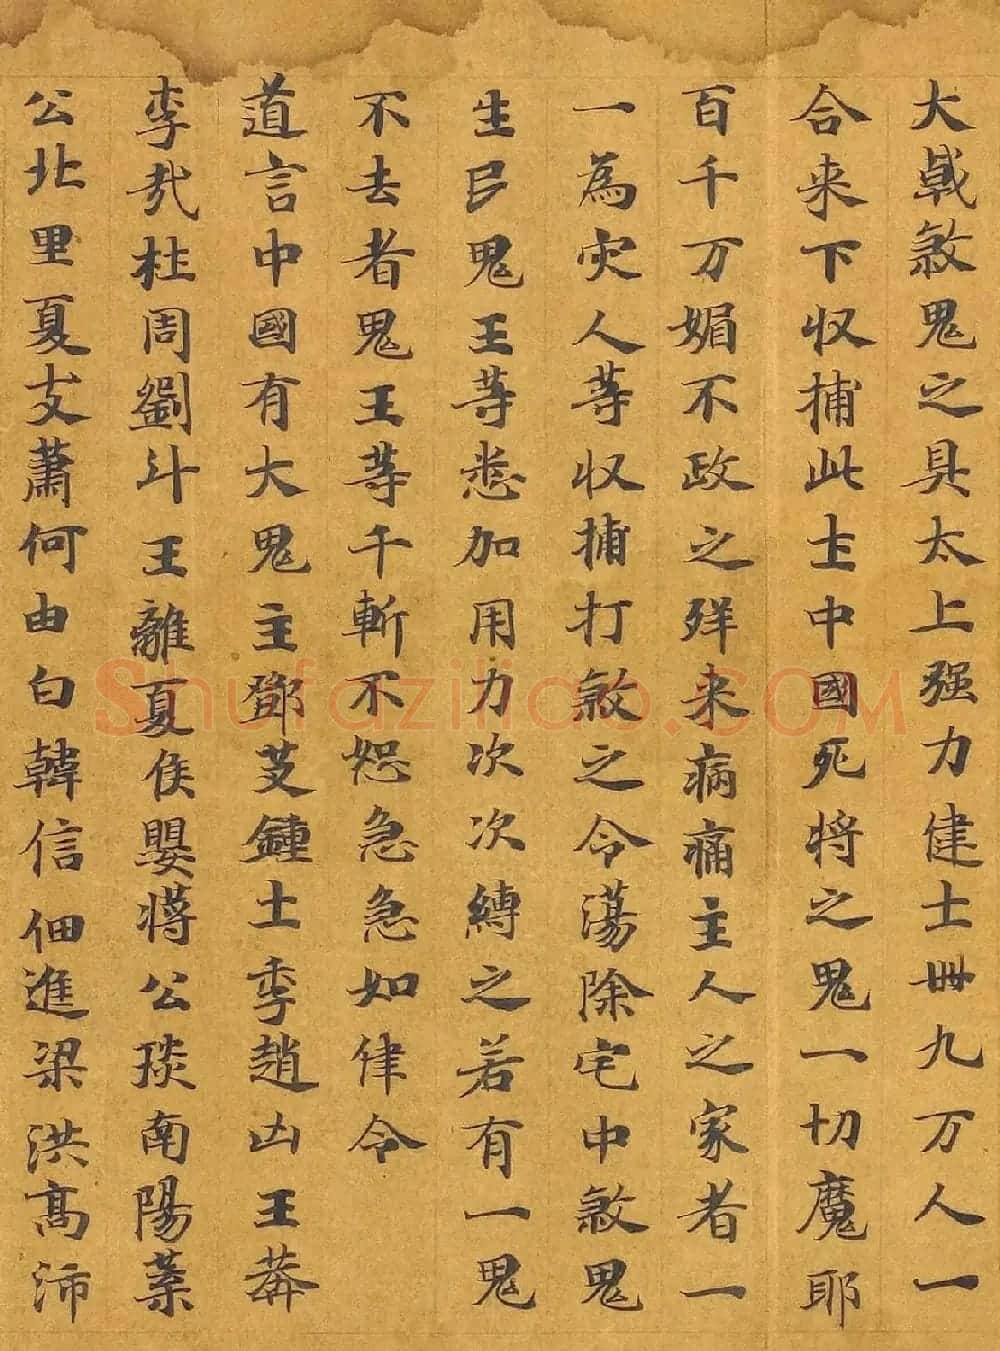 大戟煞鬼之具太上强力健士卌九万人一
合来下収捕此圡中國死将之鬼一切魔耶
百千万媚不政之殃来病痛主人之家者一
一為灾人等収捕打煞之令蕩除宅中煞鬼
生鬼王等悉加用力次次縛之若有一鬼
不去者鬼王等千斬不恕急急如律令
道言中國有大鬼主鄧艾鍾士季趙山王莽
李杜周劉斗王離夏侯嬰蔣公琰南陽葉
公北里夏支蕭何由白韓信佃進梁洪髙沛
Shufaziliao.COM